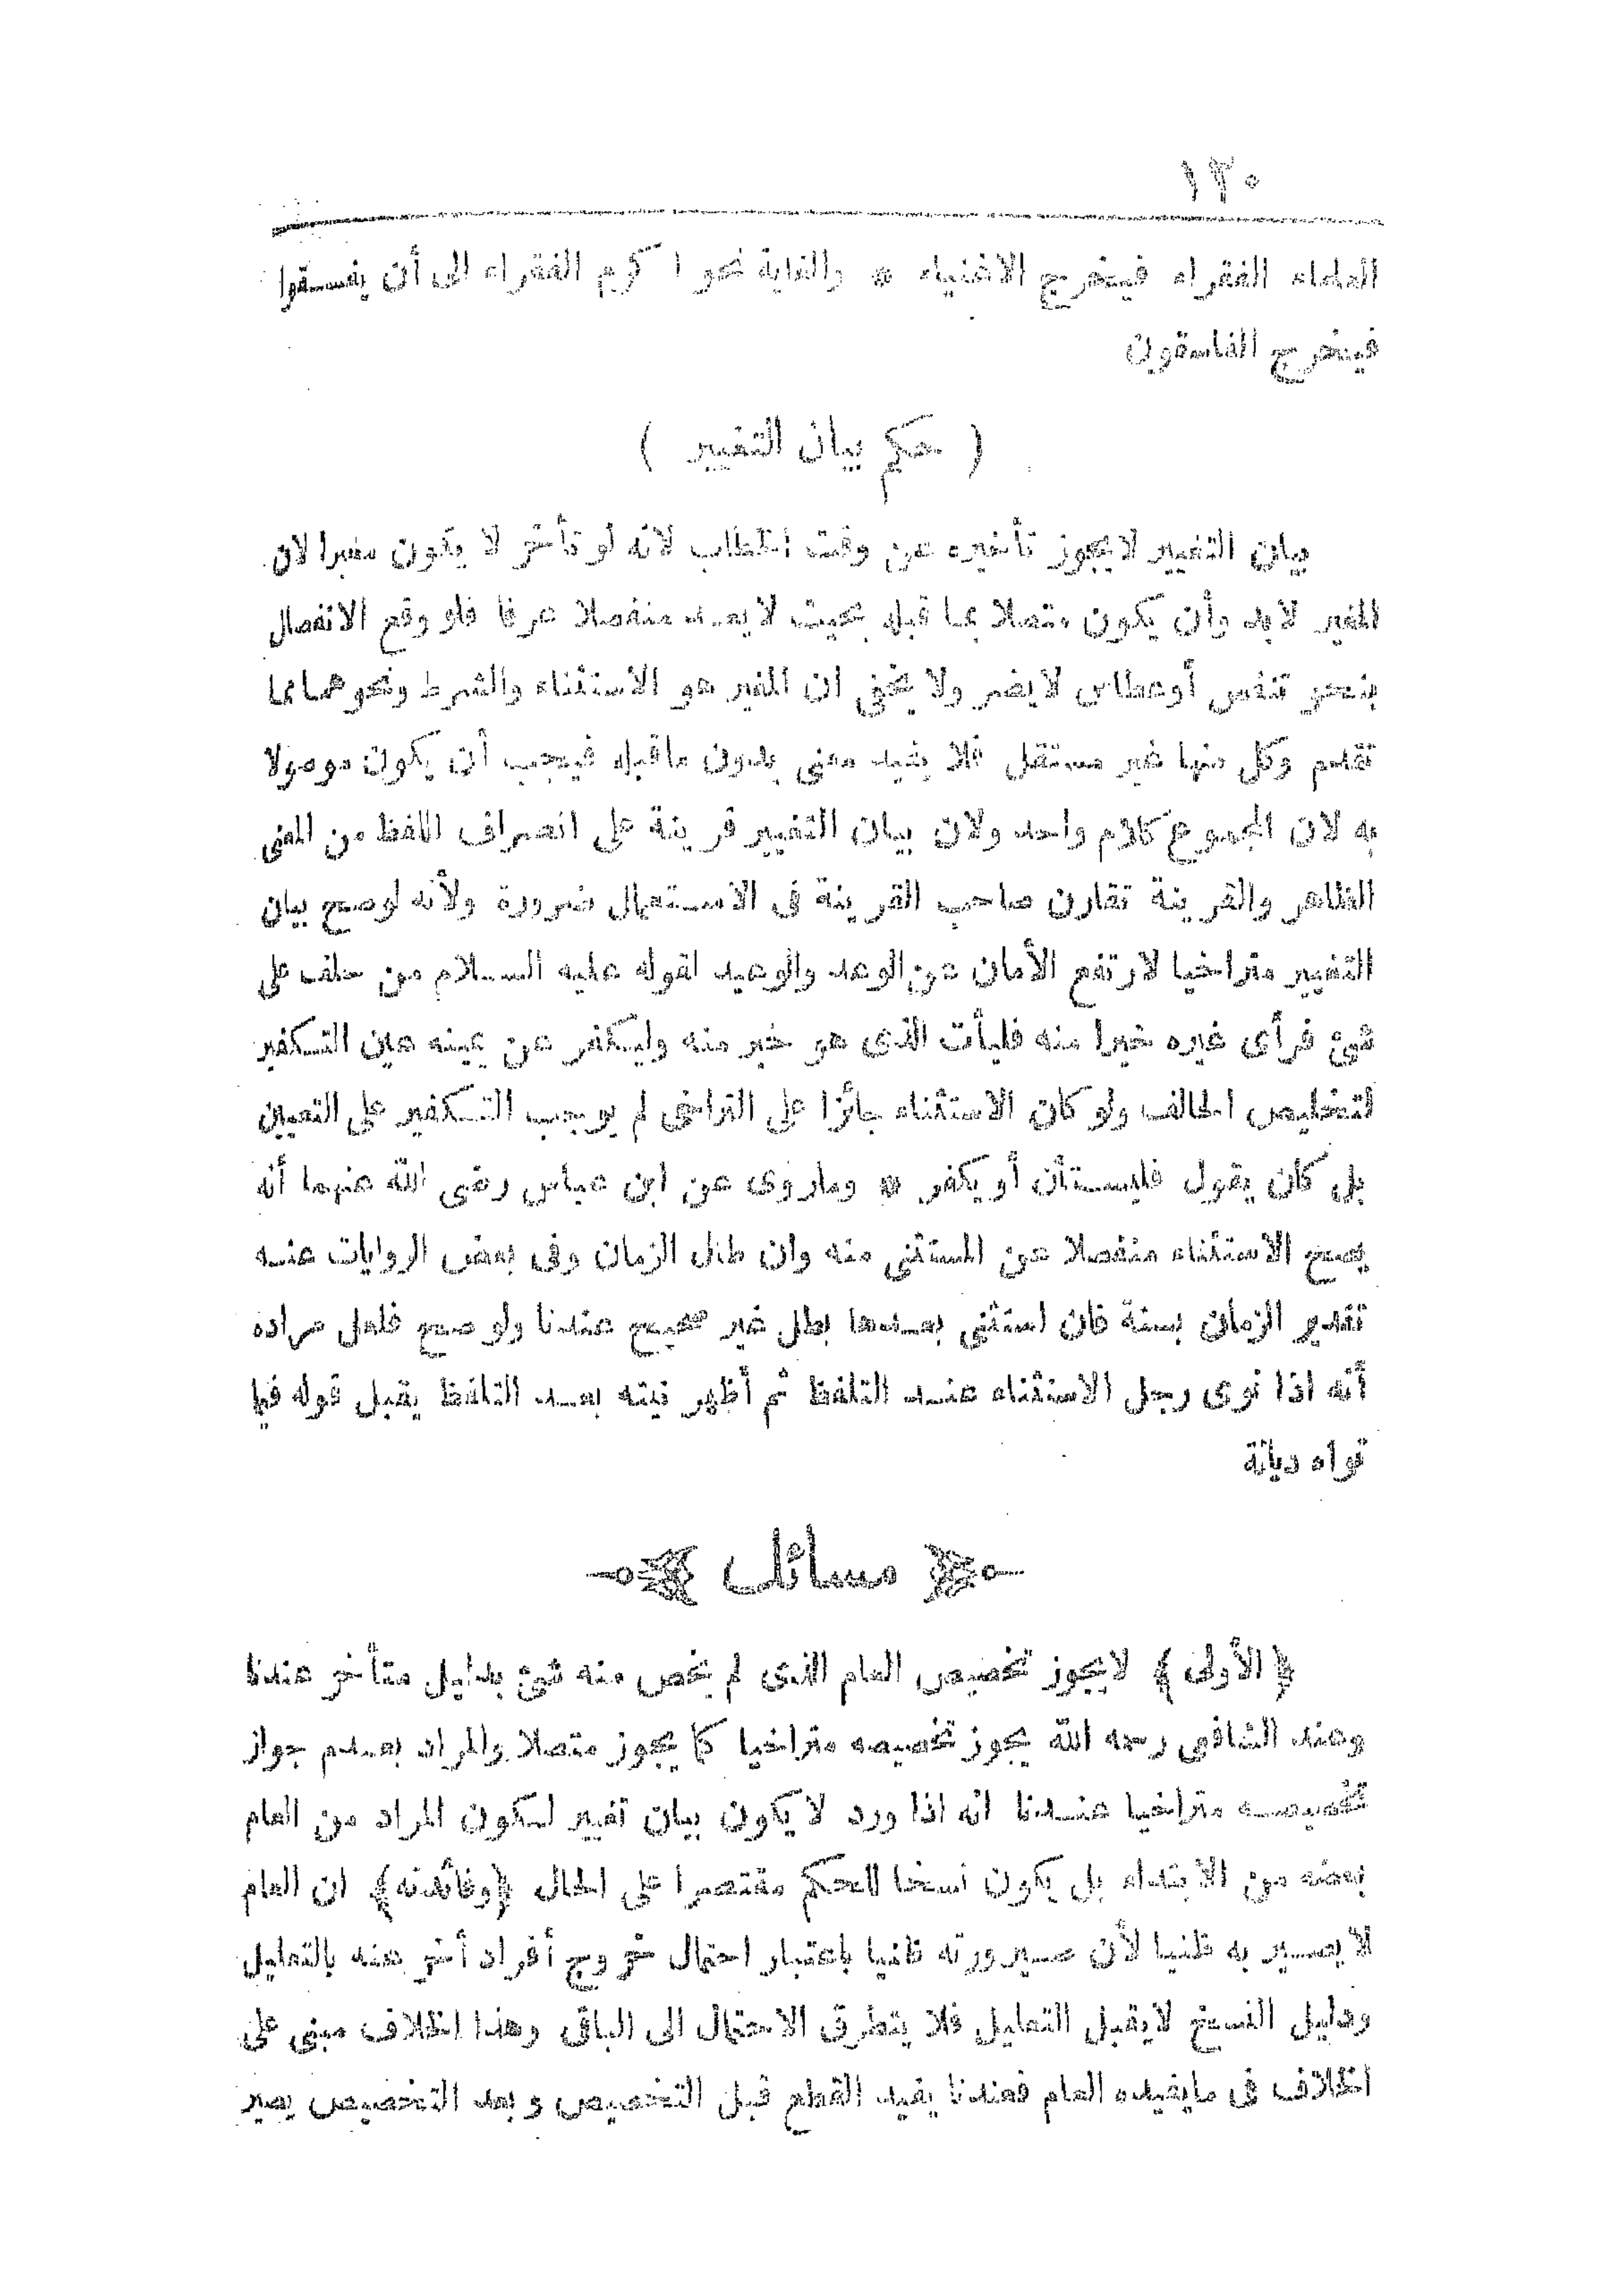 ١٣٠
العلماء الفقراء فيخرج الاغنياء * والغاية نحو اكرم الفقراء الى أن يفسقوا
فيخرج الفاسقون
( حكم بيان التغيير )
بيان التغيير لايجوز تأخيره عن وقت الخطاب لانه لو تأخر لا يكون مغيرا لان
المغير لابد وأن يكون متصلا بما قبله بحيث لايعد منفصلا عرفا فلو وقع الانفصال
بنحو تنفس أوعطاس لايضر ولا يخفى ان المغير هو الاستثناء والشرط ونحوهما مما
تقدم وكل منها غير مستقل فلا يفيد معنى بدون ماقبله فيجب أن يكون موصولا
به لان المجموع كلام واحد ولان بيان التغيير قرينة على انصراف اللفظ من المعنى
الظاهر والقرينة تقارن صاحب القرينة فى الاستعمال ضرورة ولأنه لوصح بيان
التغيير متراخيا لارتفع الأمان عن الوعد والوعيد لقوله عليه السلام من حلف على
شئ فرأى غيره خيرا منه فليأت الذى هو خير منه وليكفر عن يمينه عين التكفير
لتخليص الحالف ولو كان الاستثناء جائزا على التراخى لم يوجب التكفير على التعيين
بل كان يقول فليستثن أو يكفر * وماروى عن ابن عباس رضى الله عنهما أنه
يصح الاستثناء منفصلا عن المستثنى منه وان طال الزمان وفى بعض الروايات عنه
تقدير الزمان بسنة فان استثنى بعدها بطل غير صحيح عندنا ولو صح فلعل مراده
أنه اذا نوى رجل الاستثناء عند التلفظ ثم أظهر نيته بعد التلفظ يقبل قوله فيما
نواه ديانة
مسائل
﴿الأولى﴾ لايجوز تخصيص العام الذى لم يخص منه شئ بدليل متأخر عندنا
وعند الشافعى رحمه الله يجوز تخصيصه متراخيا كما يجوز متصلا والمراد بعدم جواز
تخصيصه متراخيا عندنا انه اذا ورد لا يكون بيان تغيير لكون المراد من العام
بعضه من الابتداء بل يكون نسخا للحكم مقتصرا على الحال ﴿وفائدته﴾ ان العام
لا يصير به ظنيا لأن صيرورته ظنيا باعتبار احتمال خروج أفراد أخر عنه بالتعليل
ودليل النسخ لايقبل التعليل فلا يتطرق الاحتمال الى الباقى وهذا الخلاف مبنى على
الخلاف فى مايفيده العام فعندنا يفيد القطع قبل التخصيص وبعد التخصيص يصير